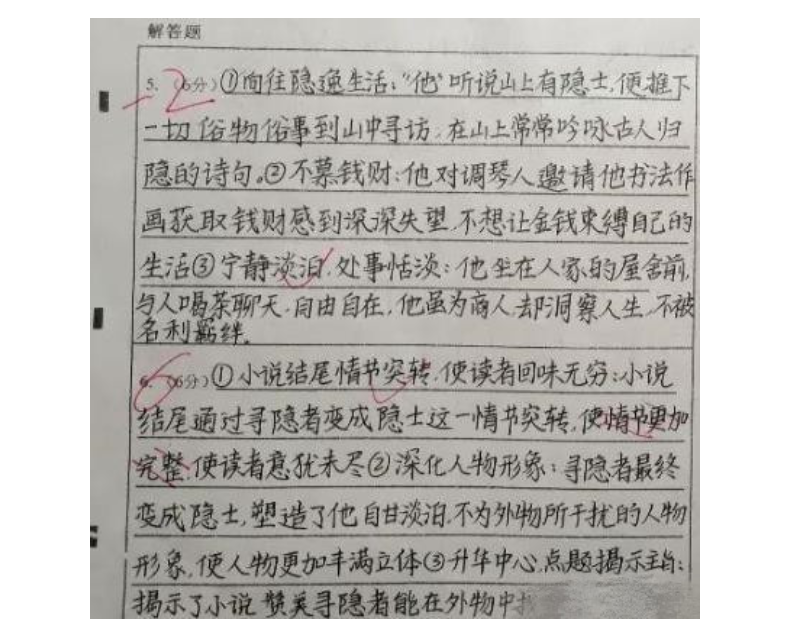 解答题
5. (6分)①向往隐逸生活:“他”听说山上有隐士,便推下
-2
一切俗物俗事到山中寻访;在山上常常吟咏古人归
隐的诗句。②不慕钱财:他对调琴人邀请他书法作
画获取钱财感到深深失望,不想让金钱束缚自己的
生活③宁静淡泊,处事恬淡:他坐在人家的屋舍前,
与人喝茶聊天,自由自在,他虽为商人,却洞察人生,不被
名利羁绊.
6. (6分)①小说结尾情节突转,使读者回味无穷:小说
6
结尾通过寻隐者变成隐士这一情节突转,使情节更加
完整,使读者意犹未尽②深化人物形象:寻隐者最终
变成隐士,塑造了他自甘淡泊,不为外物所干扰的人物
形象,使人物更加丰满立体③升华中心,点题揭示主旨:
揭示了小说赞美寻隐者能在外物中